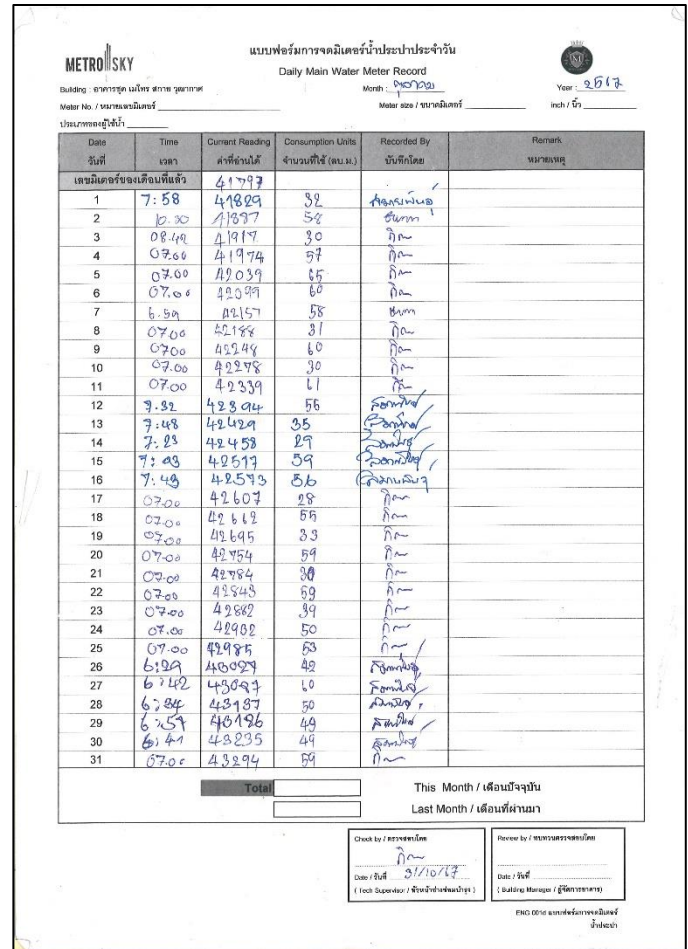 METRO SKY
แบบฟอร์มการจดมิเตอร์น้ำประปาประจำวัน
Daily Main Water Meter Record
Building : อาคารชุด เมโทร สกาย วุฒากาศ Month : ตุลาคม Year : 2567
Meter No. / หมายเลขมิเตอร์ Meter size / ขนาดมิเตอร์ inch / นิ้ว
ประเภทของผู้ใช้น้ำ
Date Time Current Reading Consumption Units Recorded By Remark
วันที่ เวลา ค่าที่อ่านได้ จำนวนที่ใช้ (ลบ.ม.) บันทึกโดย หมายเหตุ
เลขมิเตอร์ของเดือนที่แล้ว 41797
1 7:58 41829 32
2 10.30 41887 58
3 08.49 41917 30
4 07.00 41974 57
5 07.00 42039 65
6 07.00 42099 60
7 6.59 42157 58
8 07.00 42188 31
9 0700 42248 60
10 07.00 42278 30
11 07.00 42339 61
12 7.32 42394 56
13 7:48 42429 35
14 7:23 42458 29
15 7:43 42517 59
16 7:43 42573 56
17 07.00 42607 28
18 07.00 42662 55
19 07.00 42695 33
20 07-00 42754 59
21 07.00 42784 30
22 07.00 42843 59
23 07.00 42882 39
24 07.00 42932 50
25 07.00 42985 53
26 6:29 43027 42
27 6:42 43087 60
28 6:34 43137 50
29 6:51 43186 49
30 6:41 43235 49
31 07.00 43294 59
Total This Month / เดือนปัจจุบัน
Last Month / เดือนที่ผ่านมา
Check by / ตรวจสอบโดย Review by / ทบทวนตรวจสอบโดย
Date / วันที่ 31/10/67 Date / วันที่
( Tech Supervisor / หัวหน้าช่างซ่อมบำรุง ) ( Building Manager / ผู้จัดการอาคาร)
ENG 001d แบบฟอร์มการจดมิเตอร์
น้ำประปา